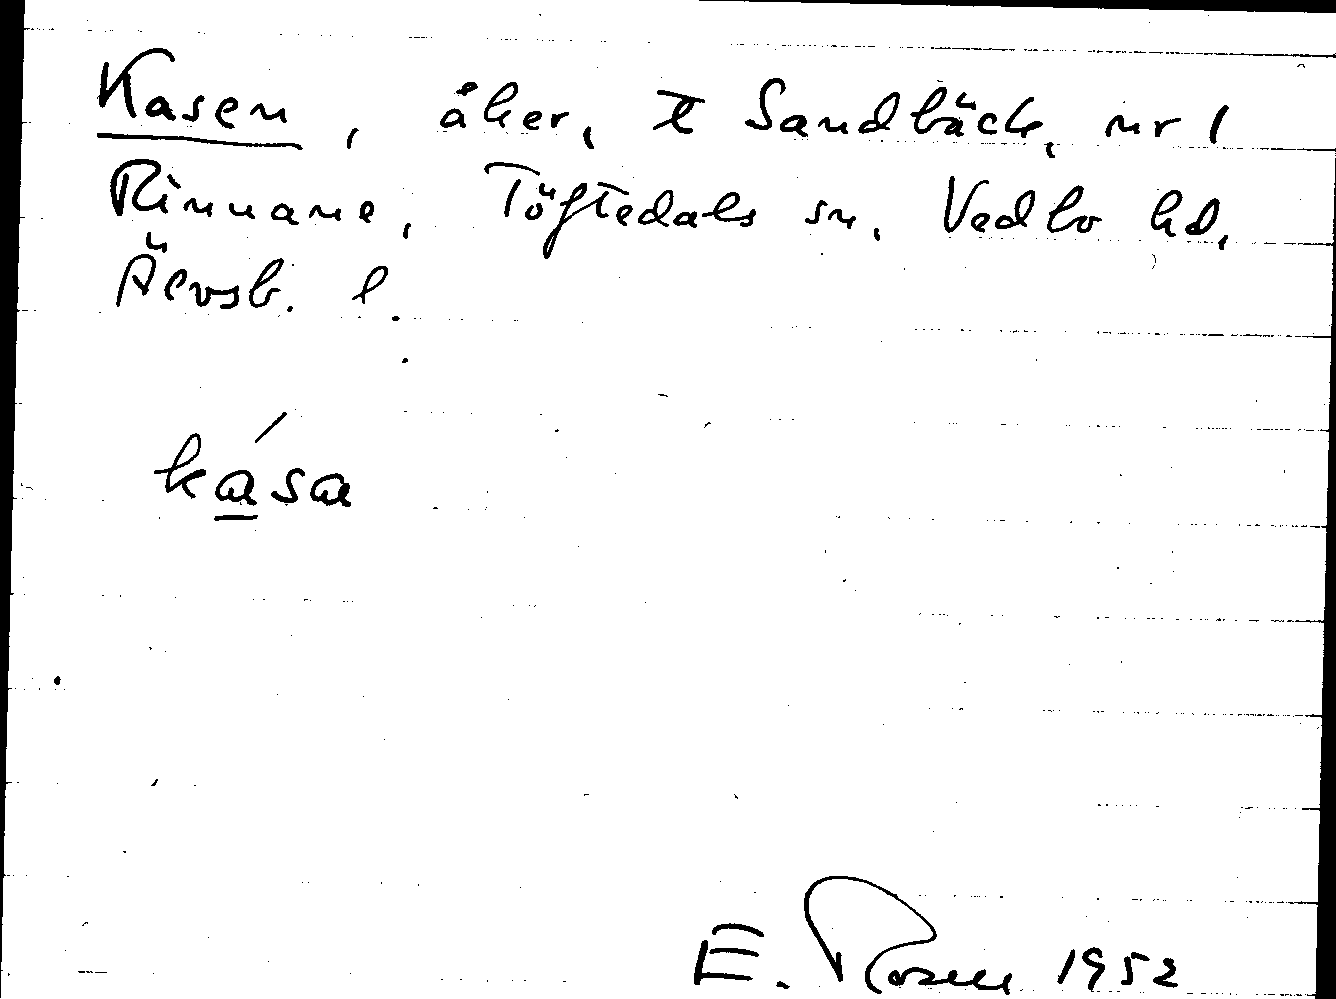 Kasen, åker, t Sandbäck, nr 1
Rinnane, Töftedals sn, Vedbo hd,
Älvsb. l.
kása
E. Rosen 1952